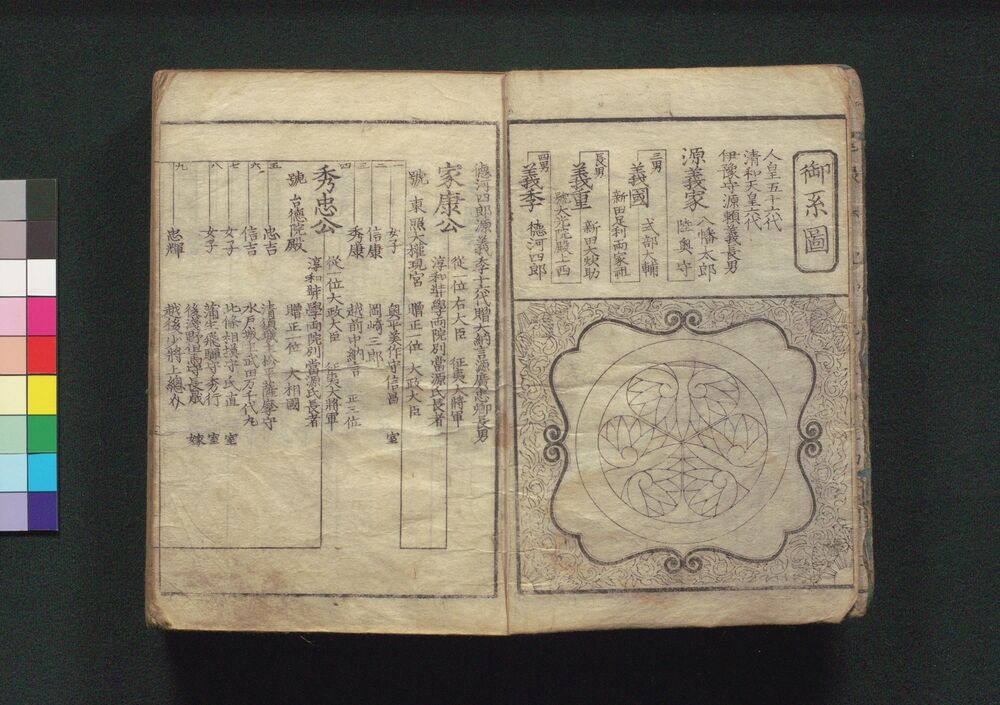 御系圖
人皇五十六代
清和天皇六代
伊豫守源頼義長男
源義家 八幡太郎
陸奥守
三男
義國 式部大輔
新田足利両家祖
長男
義重 新田大炊助
四男
義季 徳河四郎
徳河四郎源義季十六代贈大納言源廣忠卿長男
家康公 從一位右大臣 征夷大將軍
淳和奬學両院別當源氏長者
號 東照大權現宮 贈正一位 大政大臣
一 女子 奥平美作守信昌 室
二 信康 岡崎三郎
三 秀康 越前中納言 正三位
四
秀忠公 從一位大政大臣 征夷大將軍
淳和奬學両院別當源氏長者
號 台德院殿 贈正一位 大相國
五 忠吉 清須城主松平薩摩守
六 信吉 水戸城主武田万千代丸
七 女子 北條相模守氏直 室
八 女子 蒲生飛騨守秀行 室
後浅野但馬守長晟 嫁
九 忠輝 越後少將上總介